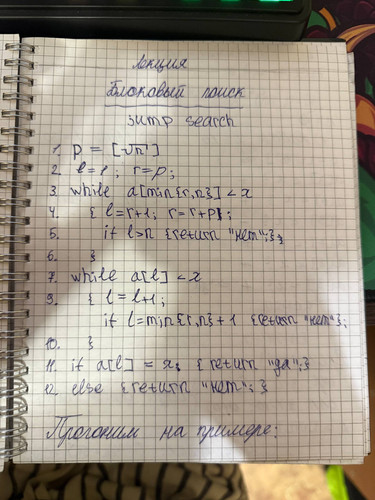 Лекция
Блоковый поиск
jump search
1. p = [√n]
2. l=1; r=p;
3. while a[min{r,n}] < x
4. { l=r+1; r=r+p;
5. if l>n {return "нет";}
6. }
7. while a[l] < x
9. { l = l+1;
if l=min{r,n}+1 {return "нет"};
10. }
11. if a[l] = x; {return "да";}
12. else {return "нет"; }
Прогоним на примере: